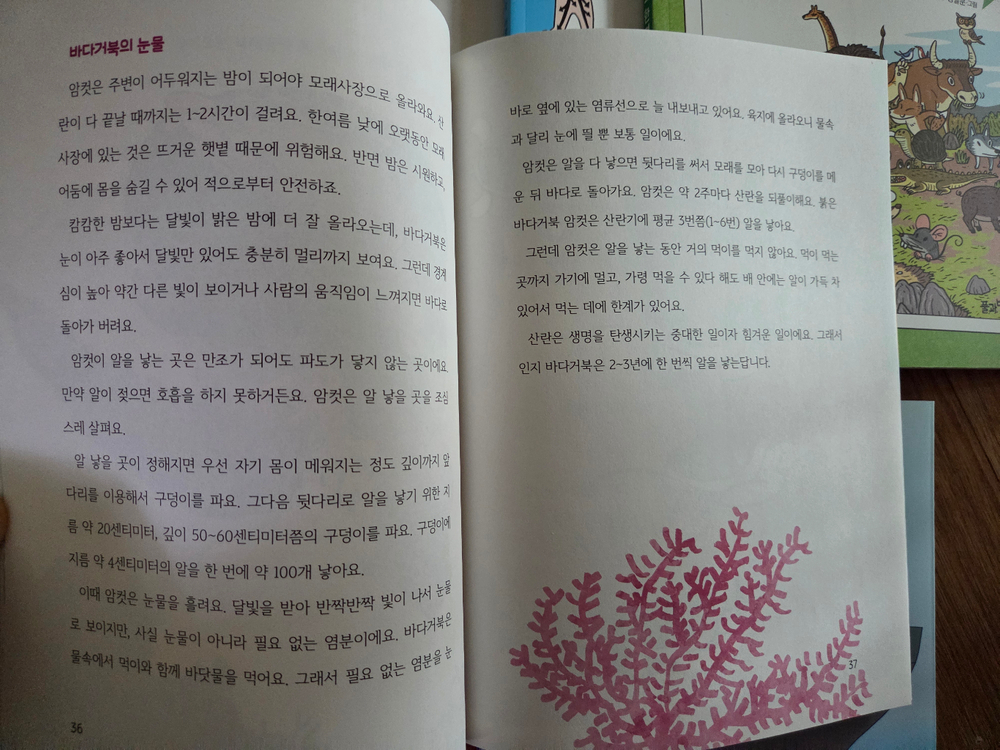 바다거북의 눈물
암컷은 주변이 어두워지는 밤이 되어야 모래사장으로 올라와요. 산
란이 다 끝날 때까지는 1~2시간이 걸려요. 한여름 낮에 오랫동안 모래
사장에 있는 것은 뜨거운 햇볕 때문에 위험해요. 반면 밤은 시원하고,
어둠에 몸을 숨길 수 있어 적으로부터 안전하죠.
캄캄한 밤보다는 달빛이 밝은 밤에 더 잘 올라오는데, 바다거북은
눈이 아주 좋아서 달빛만 있어도 충분히 멀리까지 보여요. 그런데 경계
심이 높아 약간 다른 빛이 보이거나 사람의 움직임이 느껴지면 바다로
돌아가 버려요.
암컷이 알을 낳는 곳은 만조가 되어도 파도가 닿지 않는 곳이에요.
만약 알이 젖으면 호흡을 하지 못하거든요. 암컷은 알 낳을 곳을 조심
스레 살펴요.
알 낳을 곳이 정해지면 우선 자기 몸이 메워지는 정도 깊이까지 앞
다리를 이용해서 구덩이를 파요. 그다음 뒷다리로 알을 낳기 위한 지
름 약 20센티미터, 깊이 50~60센티미터쯤의 구덩이를 파요. 구덩이에
지름 약 4센티미터의 알을 한 번에 약 100개 낳아요.
이때 암컷은 눈물을 흘려요. 달빛을 받아 반짝반짝 빛이 나서 눈물
로 보이지만, 사실 눈물이 아니라 필요 없는 염분이에요. 바다거북은
물속에서 먹이와 함께 바닷물을 먹어요. 그래서 필요 없는 염분을 눈
36
바로 옆에 있는 염류선으로 늘 내보내고 있어요. 육지에 올라오니 물속
과 달리 눈에 띌 뿐 보통 일이에요.
암컷은 알을 다 낳으면 뒷다리를 써서 모래를 모아 다시 구덩이를 메
운 뒤 바다로 돌아가요. 암컷은 약 2주마다 산란을 되풀이해요. 붉은
바다거북 암컷은 산란기에 평균 3번쯤(1~6번) 알을 낳아요.
그런데 암컷은 알을 낳는 동안 거의 먹이를 먹지 않아요. 먹이 먹는
곳까지 가기에 멀고, 가령 먹을 수 있다 해도 배 안에는 알이 가득 차
있어서 먹는 데에 한계가 있어요.
산란은 생명을 탄생시키는 중대한 일이자 힘겨운 일이에요. 그래서
인지 바다거북은 2~3년에 한 번씩 알을 낳는답니다.
37